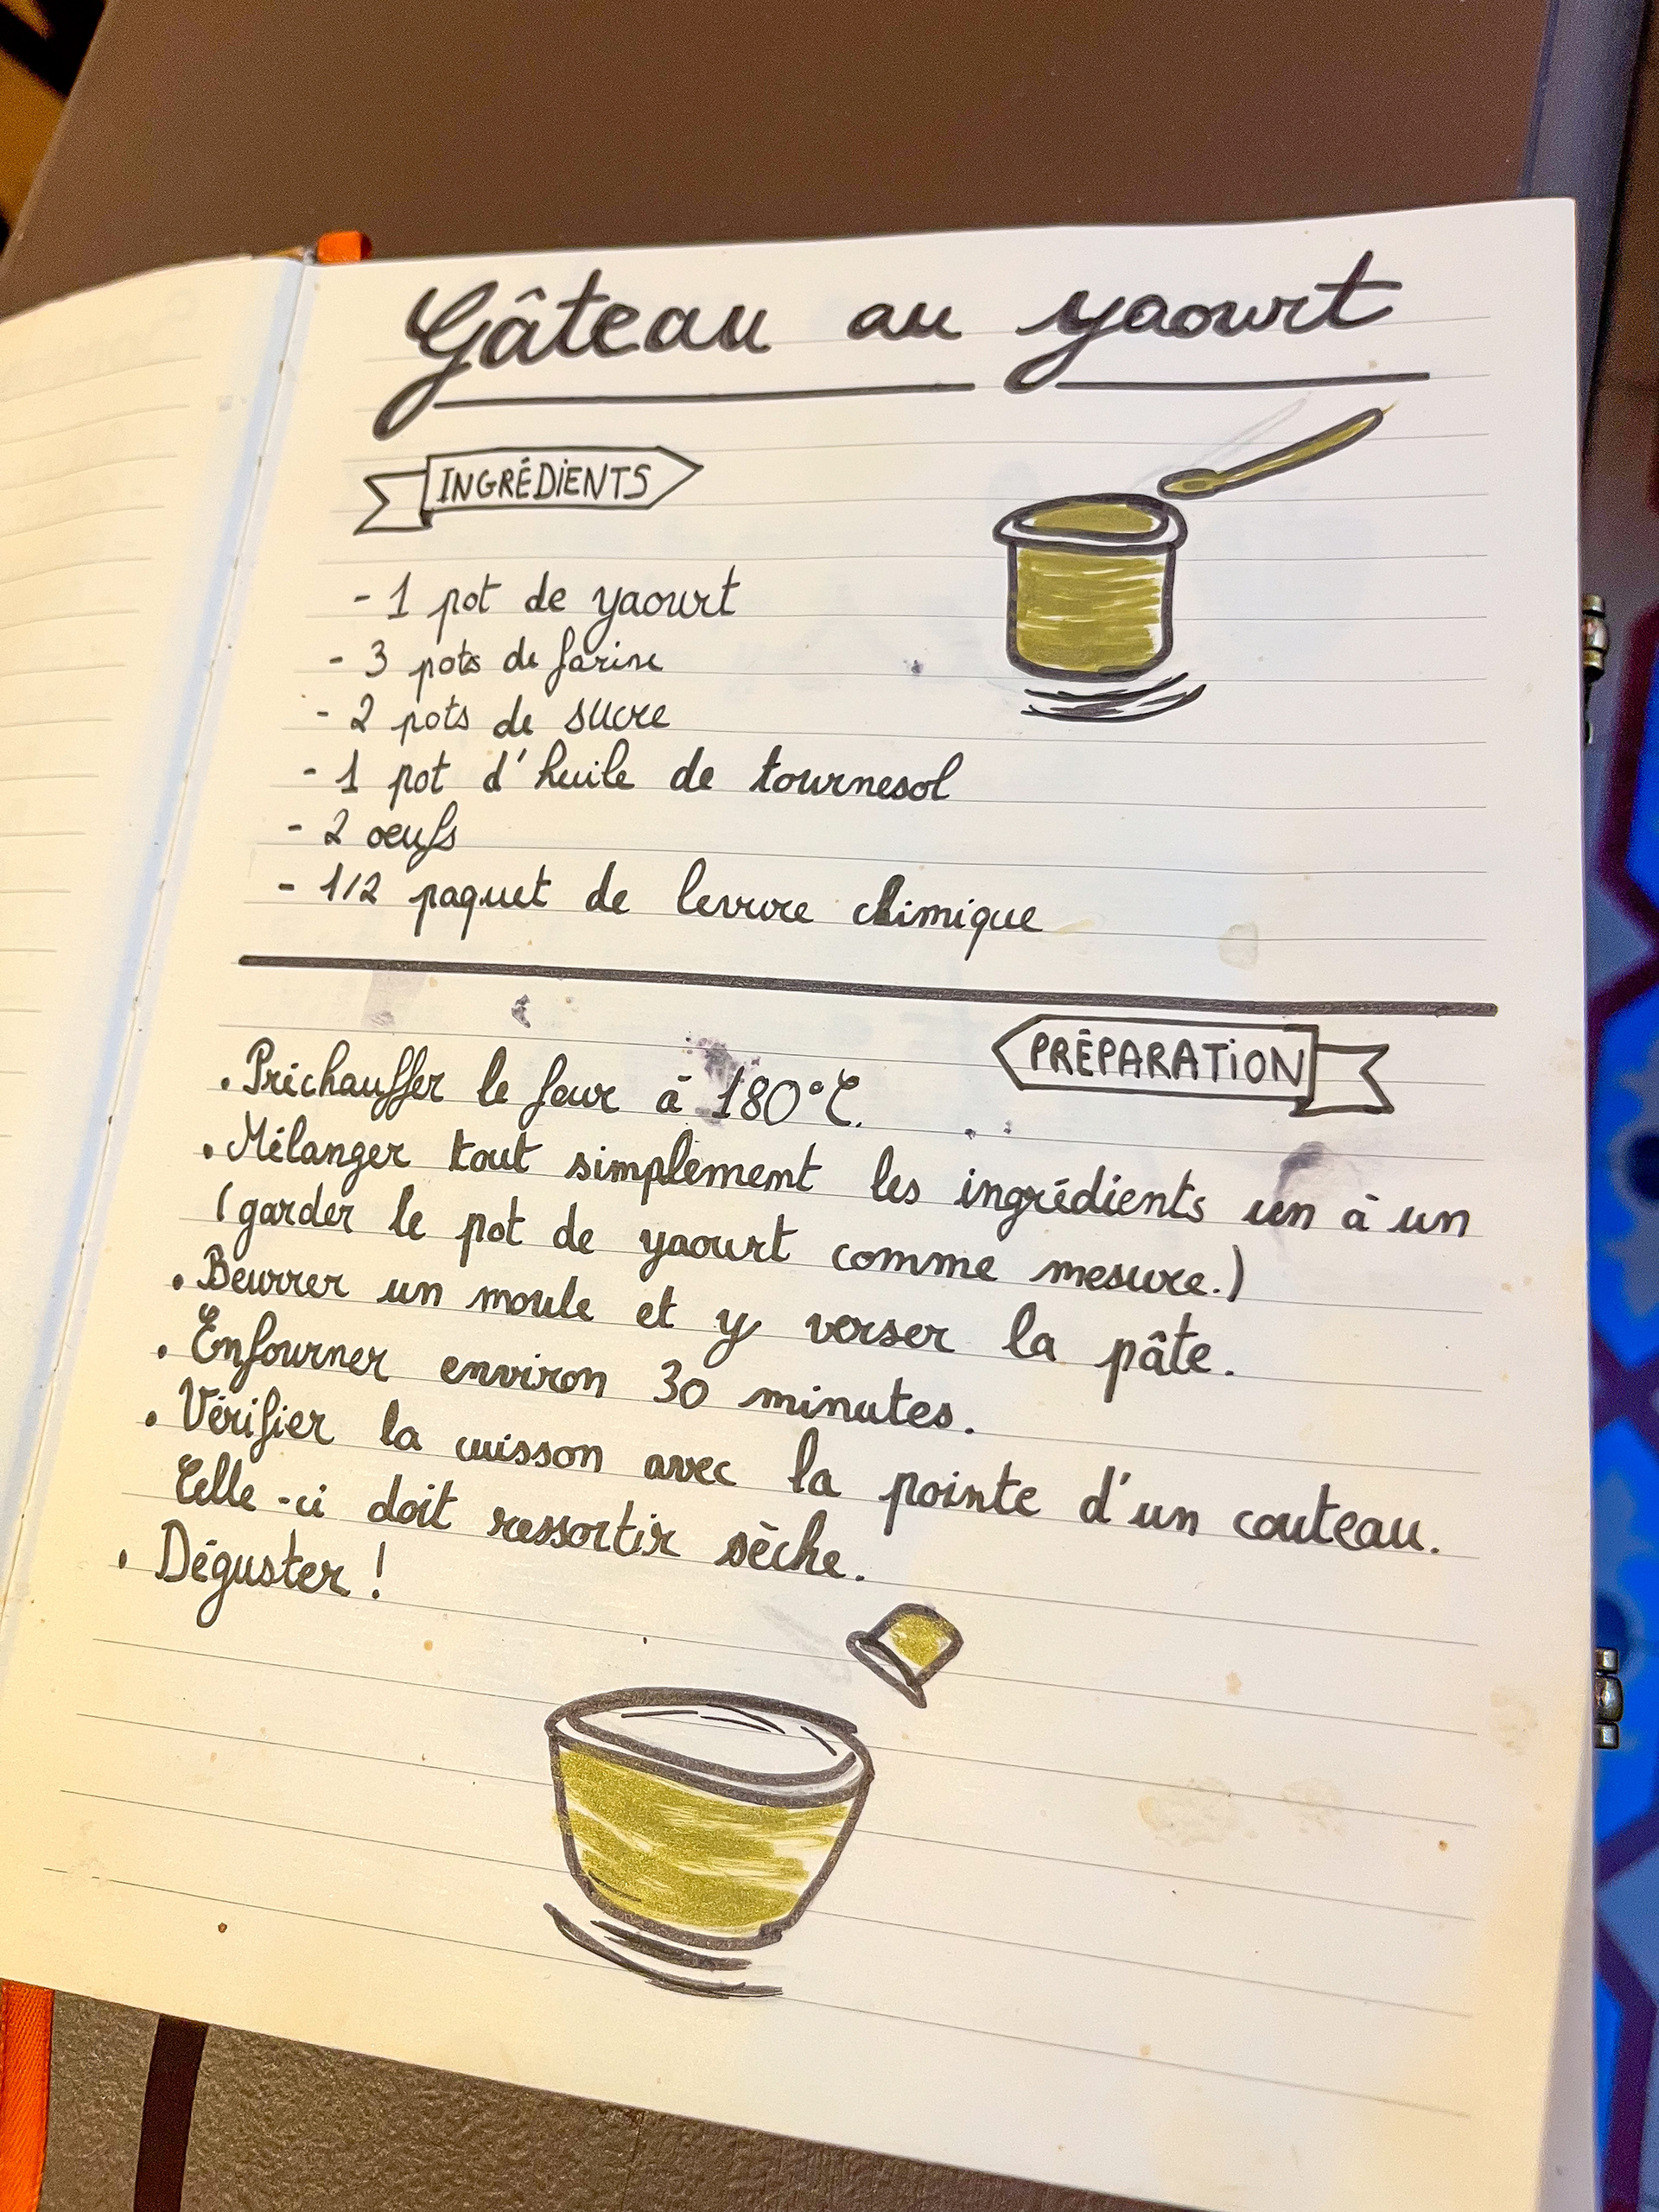 Gâteau au yaourt
INGRÉDIENTS
- 1 pot de yaourt
- 3 pots de farine
- 2 pots de sucre
- 1 pot d'huile de tournesol
- 2 oeufs
- 1/2 paquet de levure chimique
PRÉPARATION
. Préchauffer le four à 180°C.
. Mélanger tout simplement les ingrédients un à un
(garder le pot de yaourt comme mesure.)
. Beurrer un moule et y verser la pâte.
. Enfourner environ 30 minutes.
. Vérifier la cuisson avec la pointe d'un couteau.
Celle-ci doit ressortir sèche.
. Déguster !